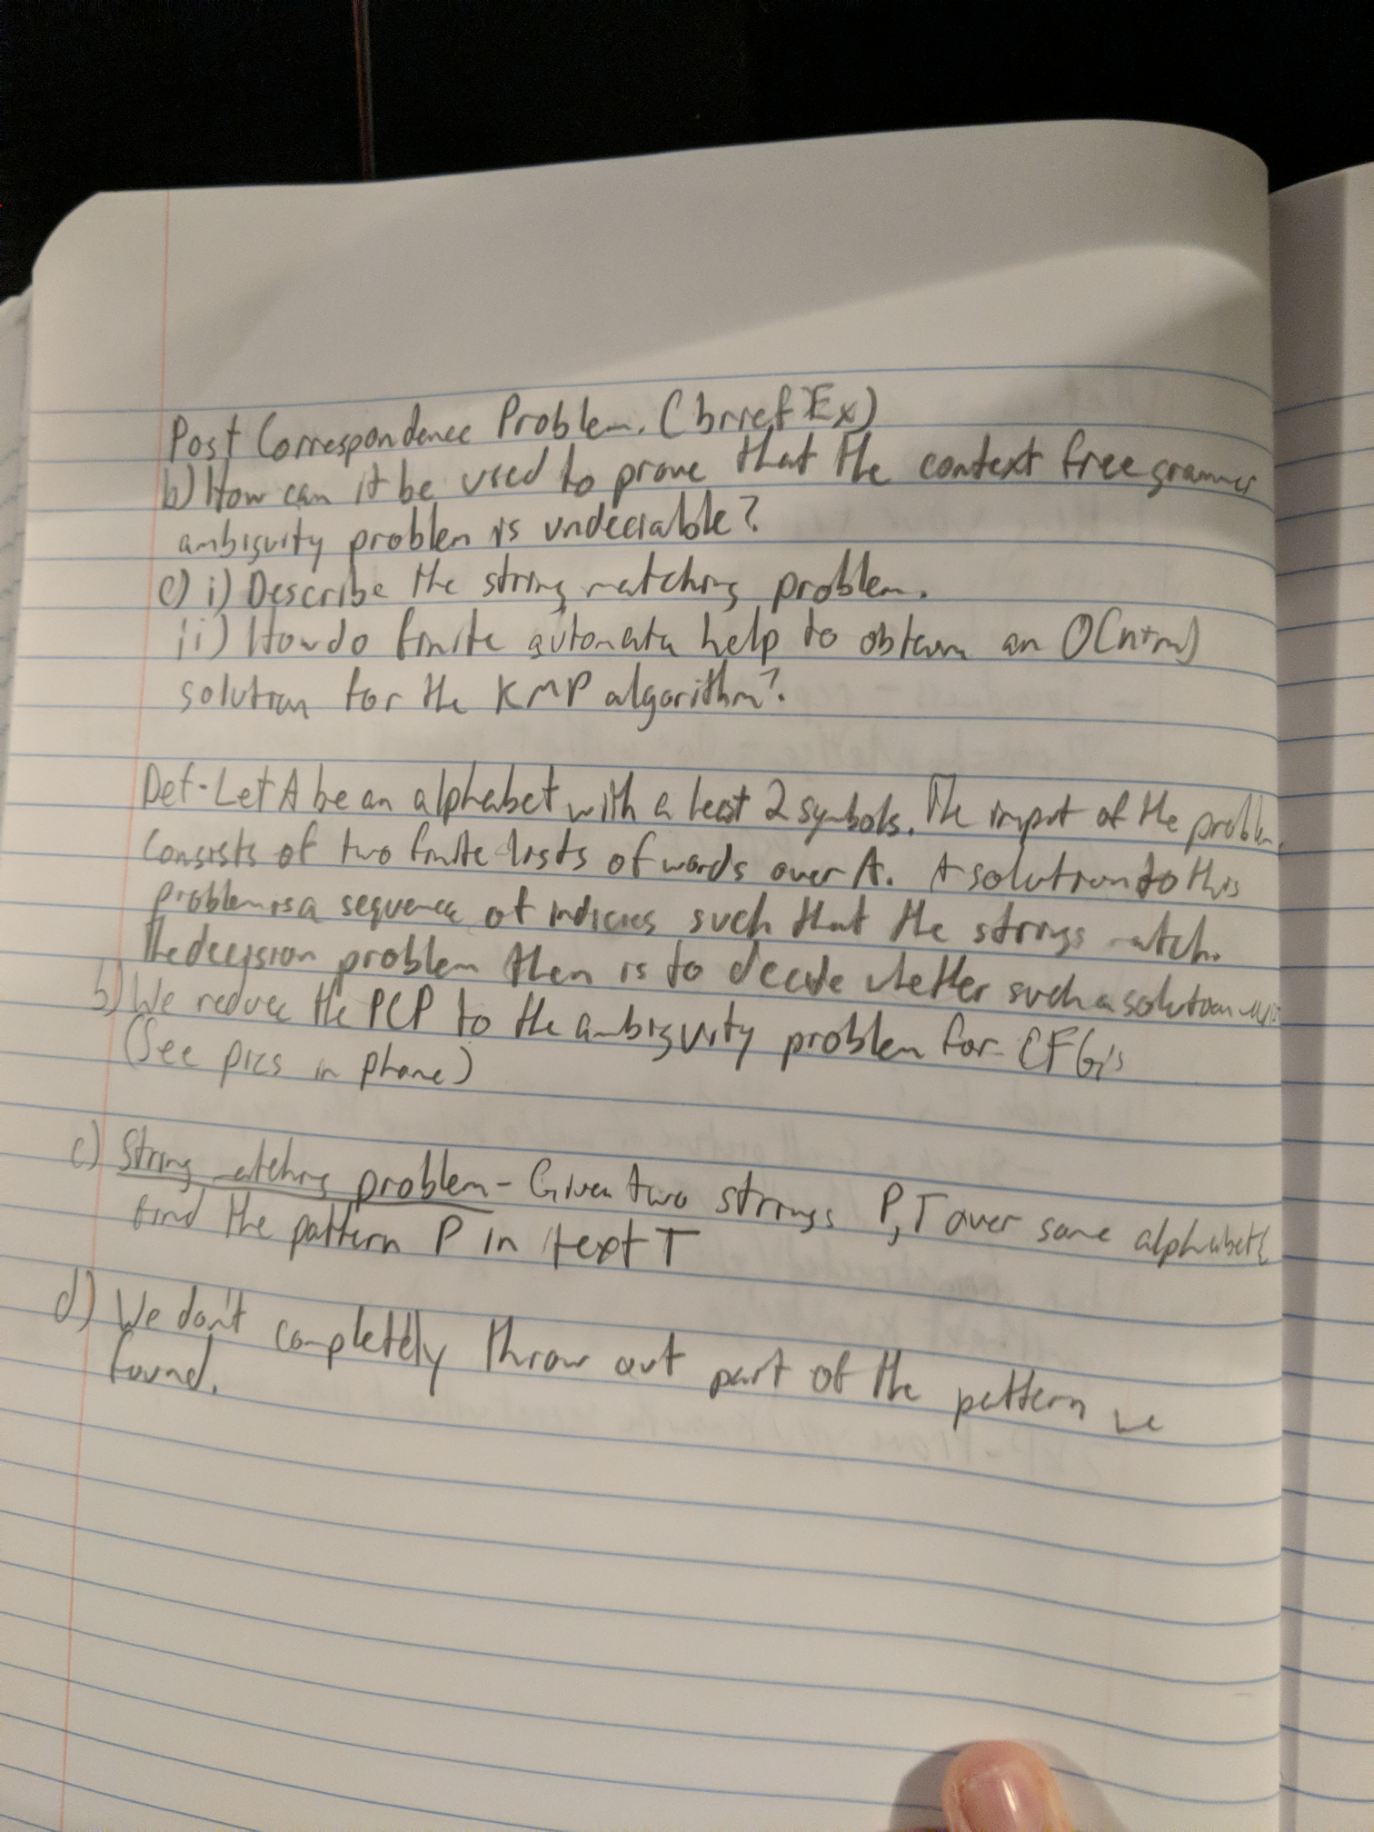 Post Correspondence Problem. (brief Ex)
b) How can it be used to prove that the context free grammer
ambiguity problem is undeciable?
c) i) Describe the string matching problem.
ii) How do finite automata help to obtain an O(n+m)
solution for the KMP algorithm?
Def - Let A be an alphabet with a least 2 symbols. The input of the problem
consists of two finite lists of words over A. A solution to this
problem is a sequence of indicies such that the strings match.
The decision problem then is to decide whether such a solution
b) We reduce the PCP to the ambiguity problem for CFG's
(See pics in phone)
c) String matching problem - Given two strings P, T over some alphabet
find the pattern P in text T
d) We don't completely throw out part of the pattern we
found.